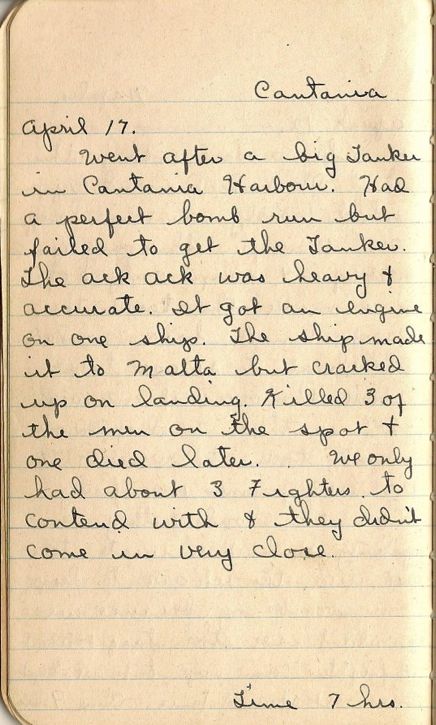 Cantania
April 17.
Went after a big Tanker
in Cantania Harbour. Had
a perfect bomb run but
failed to get the Tanker.
The ack ack was heavy &
accurate. It got an engine
on one ship. The ship made
it to Malta but cracked
up on landing. Killed 3 of
the men on the spot &
one died later. We only
had about 3 Fighters to
contend with & they didn't
come in very close.
Time 7 hrs.